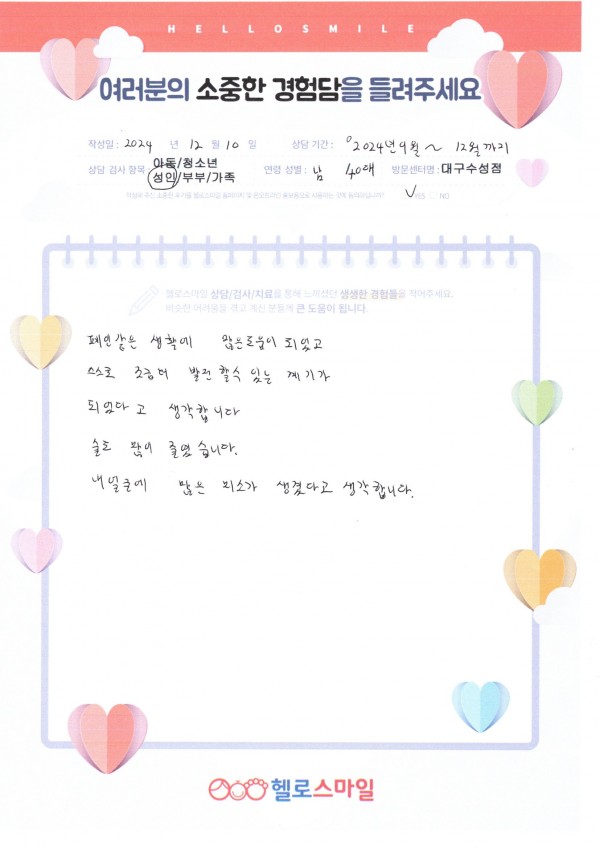 HELLOSMILE
여러분의 소중한 경험담을 들려주세요
작성일 : 2024 년 12 월 10 일 상담 기간 : 2024년 9월 ~ 12월 까지
상담 검사 항목 아동/청소년 성인/부부/가족 연령 성별 : 남 40대 방문센터명 : 대구수성점
YES NO
헬로스마일 상담/검사/치료를 통해 느끼셨던 생생한 경험들을 적어주세요.
비슷한 어려움을 겪고 계신 분들께 큰 도움이 됩니다.
폐인같은 생활에 많은도움이 되었고
스스로 조금더 발전 할수 있는 계기가
되었다고 생각합니다
술도 많이 줄였습니다.
내얼굴에 많은 미소가 생겼다고 생각합니다.
헬로스마일